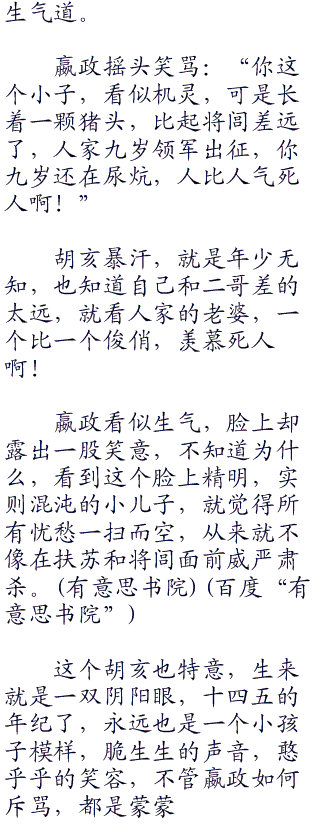 生气道。
嬴政摇头笑骂：“你这
个小子，看似机灵，可是长
着一颗猪头，比起将闾差远
了，人家九岁领军出征，你
九岁还在尿炕，人比人气死
人啊！”
胡亥暴汗，就是年少无
知，也知道自己和二哥差的
太远，就看人家的老婆，一
个比一个俊俏，羡慕死人
啊！
嬴政看似生气，脸上却
露出一股笑意，不知道为什
么，看到这个脸上精明，实
则混沌的小儿子，就觉得所
有忧愁一扫而空，从来就不
像在扶苏和将闾面前威严肃
杀。(有意思书院) (百度“有
意思书院”)
这个胡亥也特意，生来
就是一双阴阳眼，十四五的
年纪了，永远也是一个小孩
子模样，脆生生的声音，憨
乎乎的笑容，不管嬴政如何
斥骂，都是蒙蒙